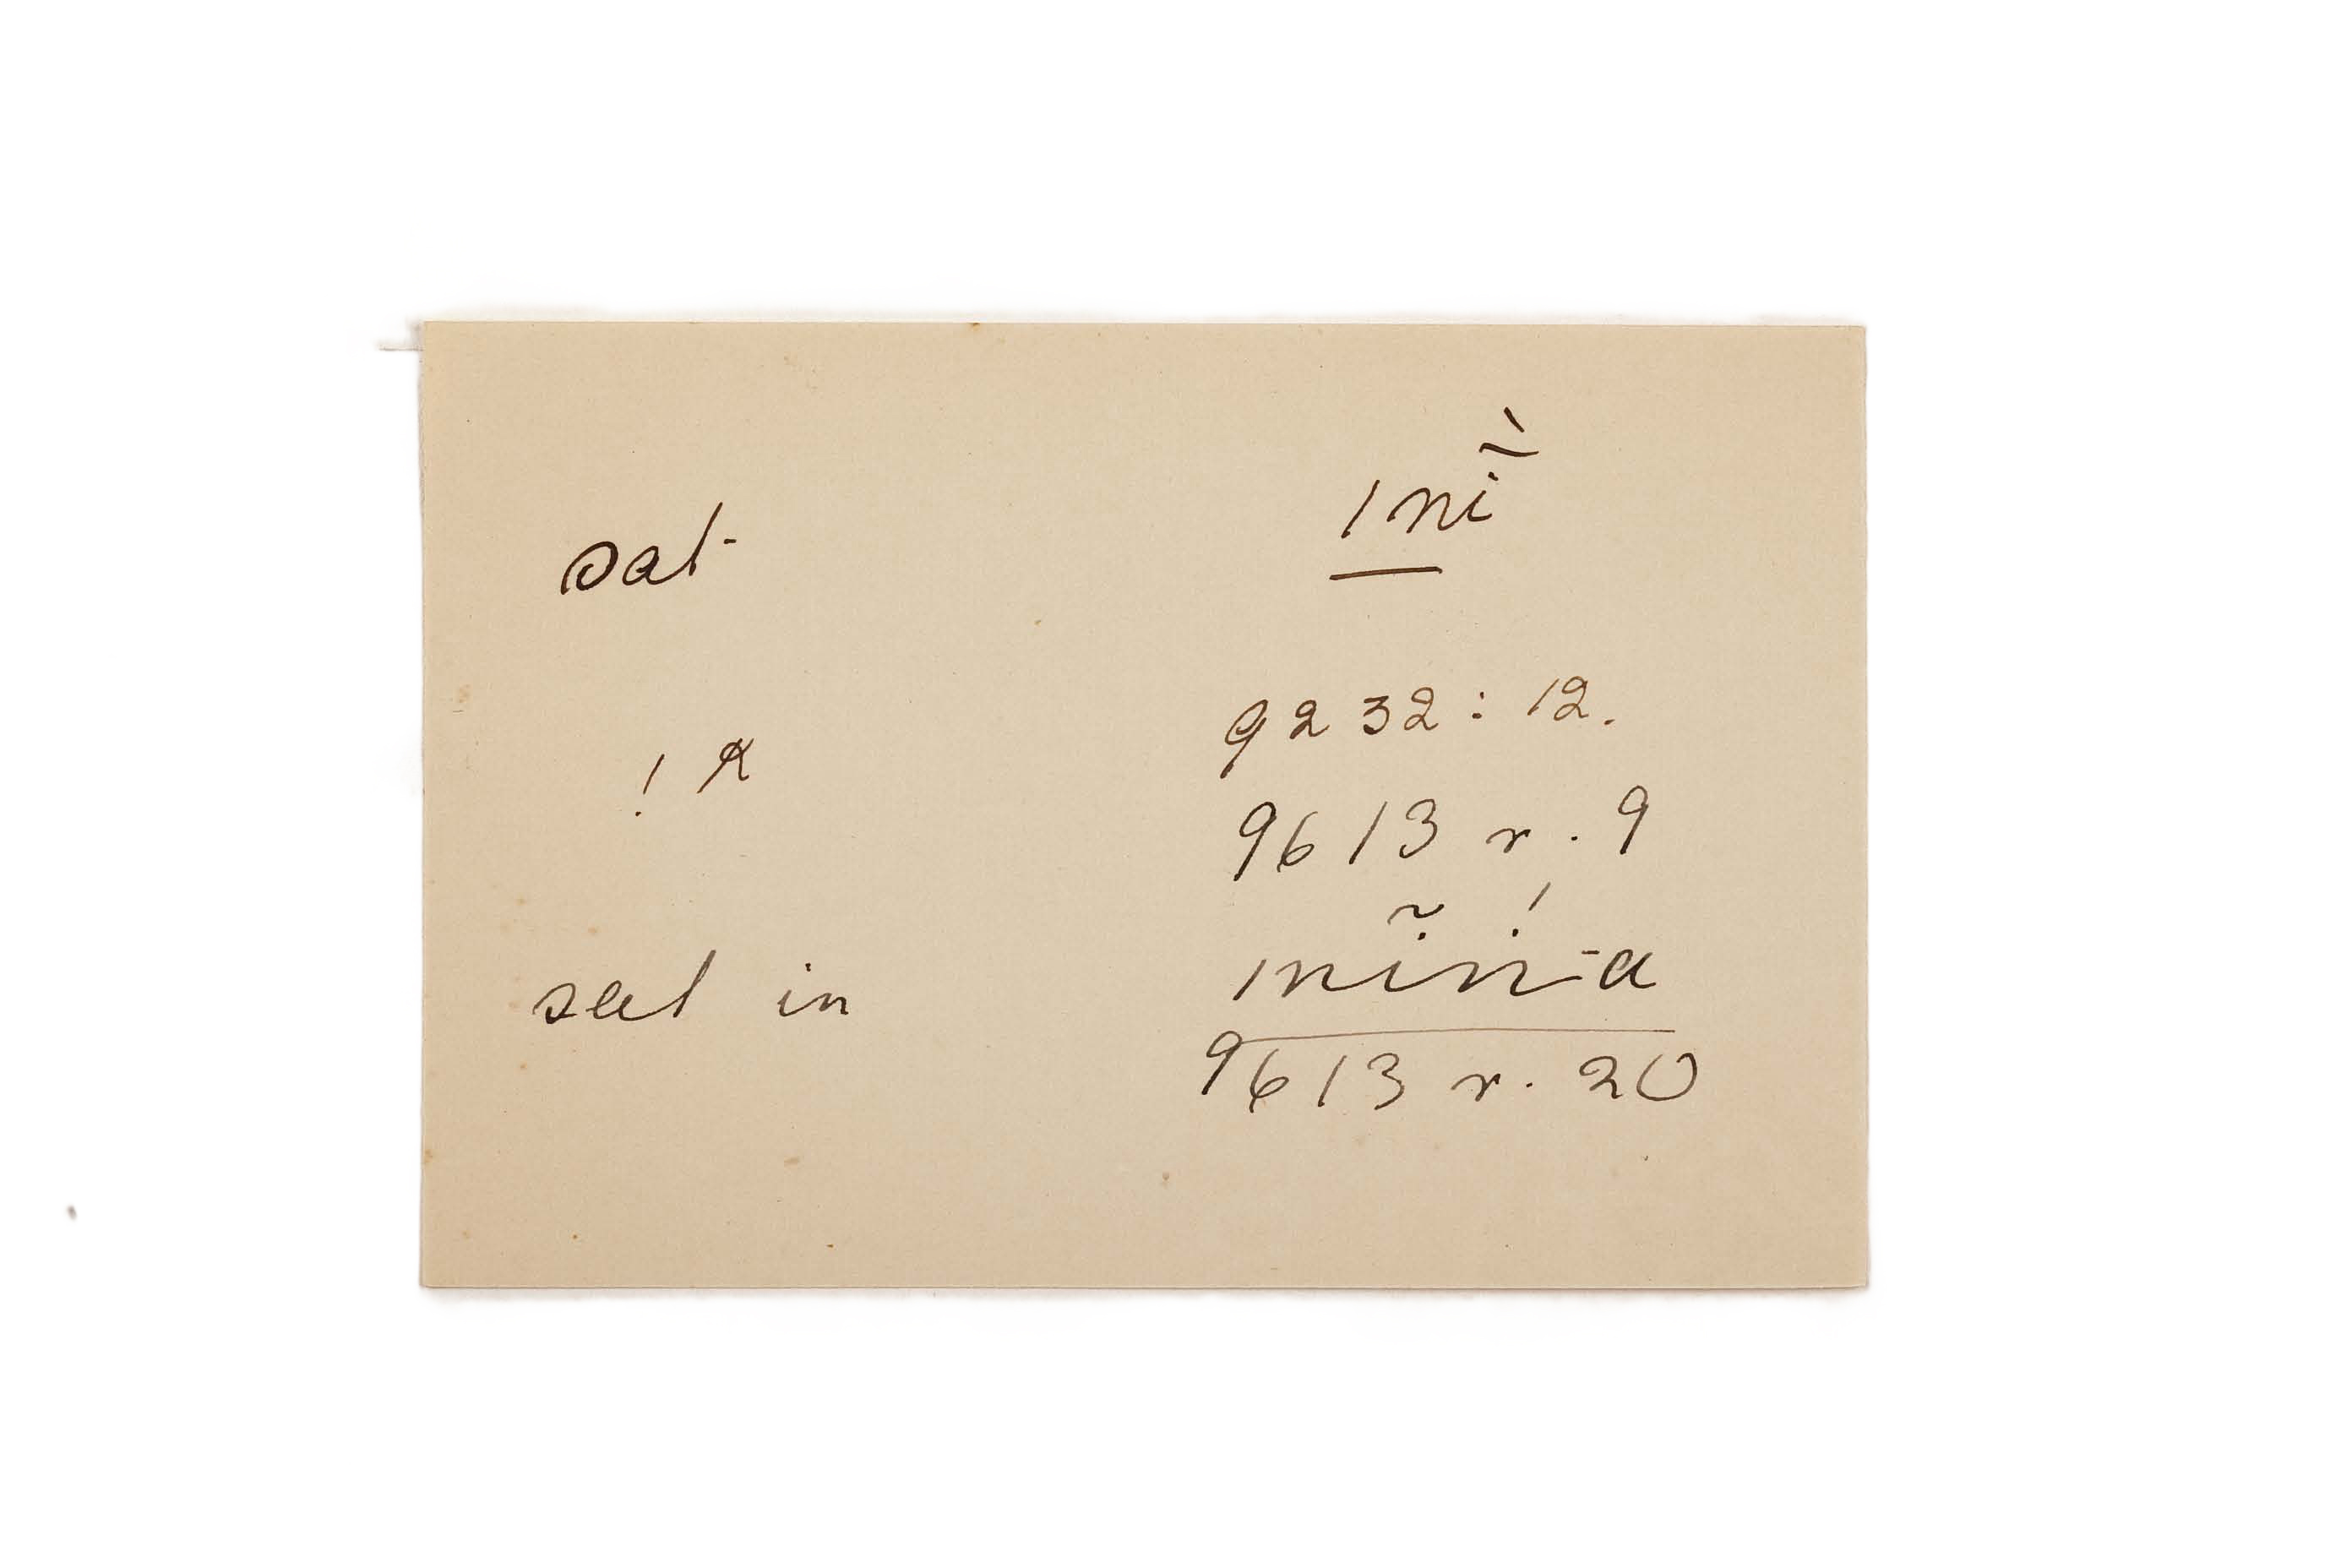 sat
ini
9232 : 12.
! A
9613 r. 9
sat in
inĩní-a
9613 r. 20